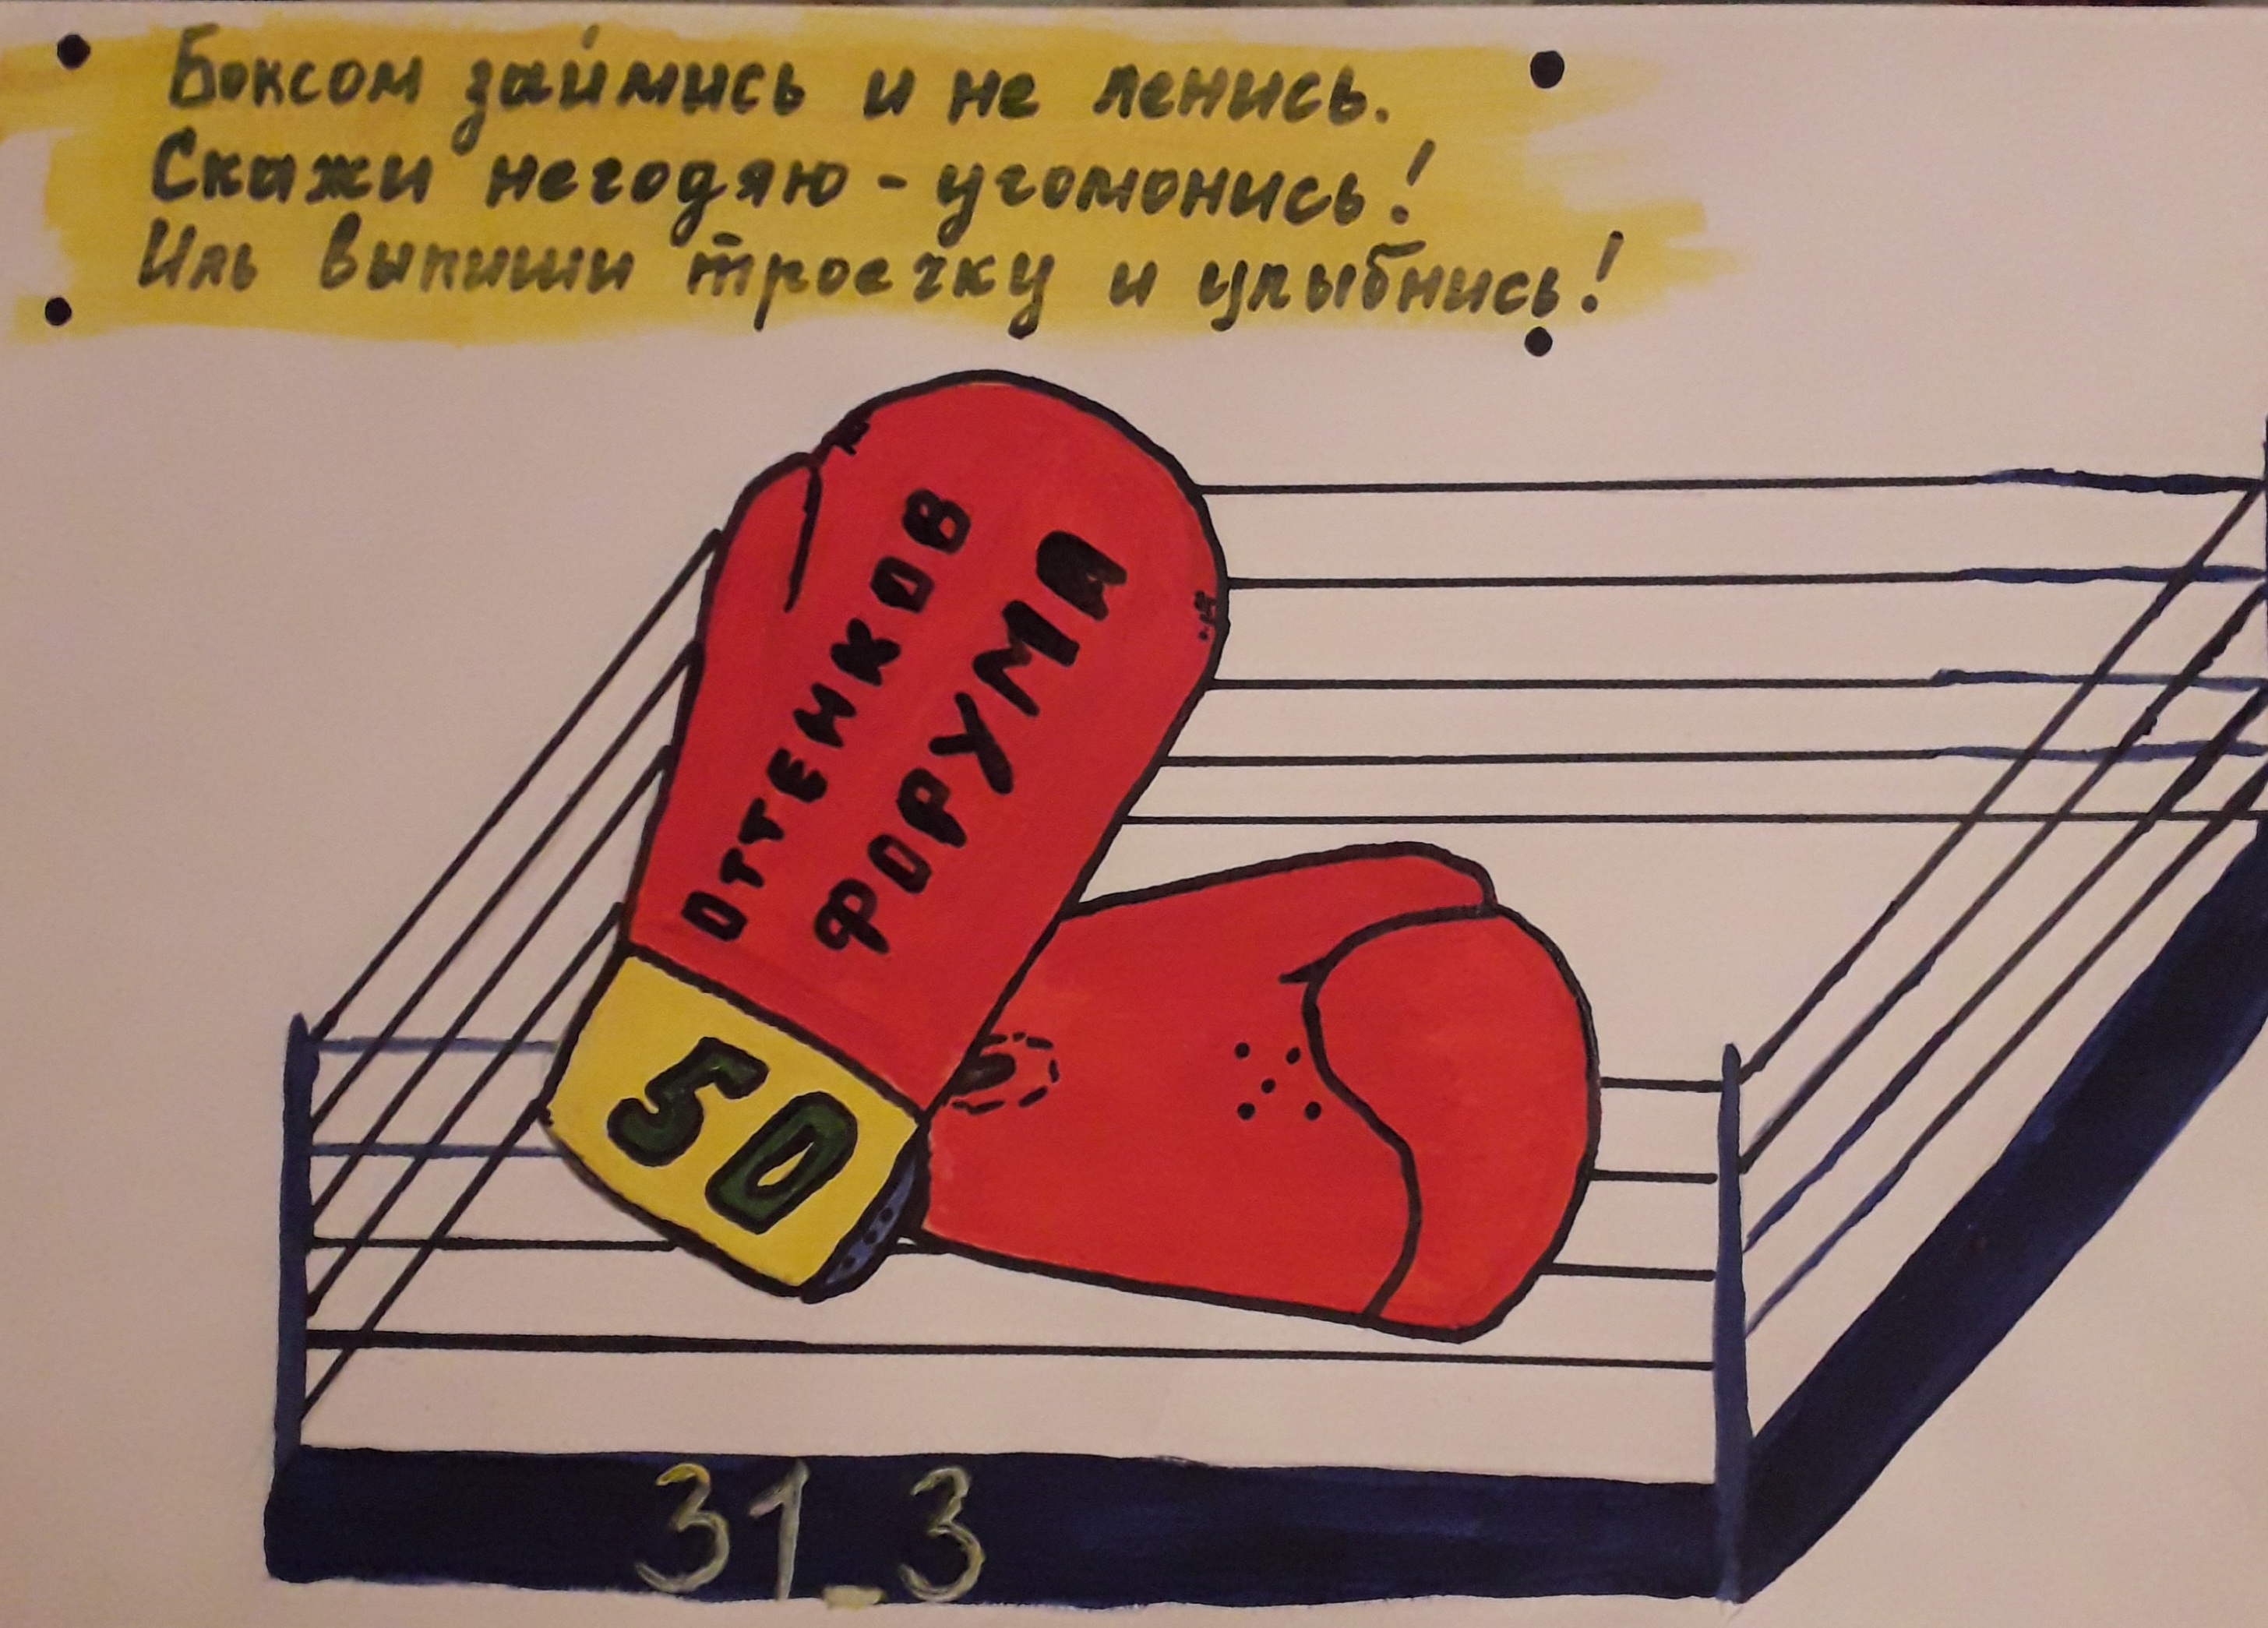 Боксом займись и не ленись.
Скажи негодяю - угомонись!
Иль выпиши троечку и улыбнись!
Оттенков
ФОРУМА
50
31_3